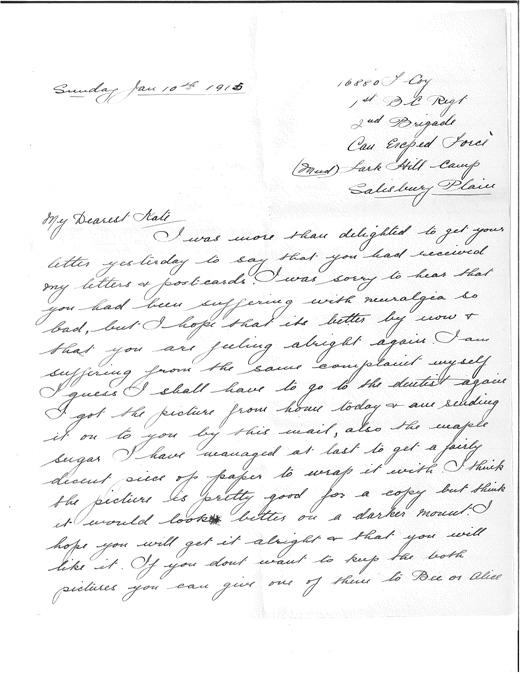 Sunday Jan 10th 1915
16880 F Coy
1st B C Regt
2nd Brigade
Can Exeped Force
(Mud) Lark Hill Camp
Salisbury Plain
My Dearest Kate
I was more than delighted to get your
letter yesterday to say that you had received
my letters & postcards. I was sorry to hear that
you had been suffering with neuralgia so
bad, but I hope that its better by now &
that you are feeling alright again I am
suffering from the same complaint myself
I guess I shall have to go to the dentist again
I got the picture from home today & am sending
it on to you by this mail, also the maple
sugar I have managed at last to get a fairly
decent piece of paper to wrap it with I think
the picture is pretty good for a copy but think
it would look better on a darker mount. I
hope you will get it alright & that you will
like it. If you dont want to keep the both
pictures you can give one of them to Bee or Alice